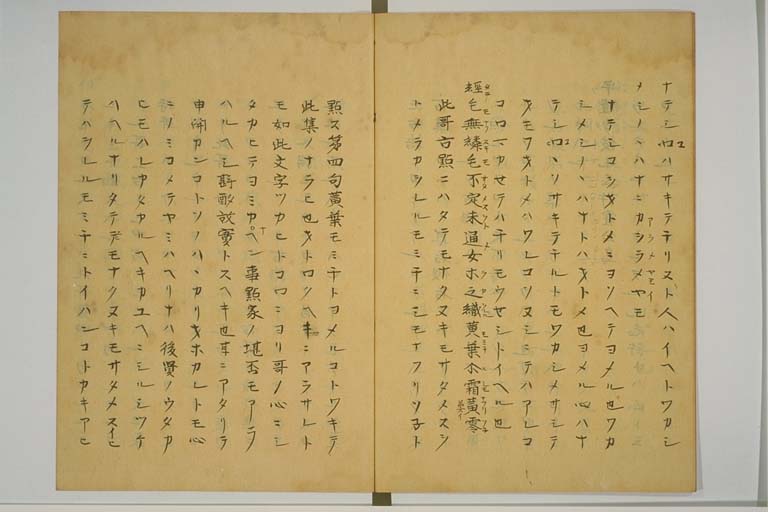 ナテシコハサキテチリヌト人ハイヘトワカシ
メシノヽハナニカシラメヤモ
ナテシコヲキトメニヨソヘテヨメル也ワカ
シメシノヽハナトハキトメ也ヨメル心ハナ
テシコヽソサキテチルトモワカシメサシテ
キモワキトメハワレコソヌシニテハアレコ
コロニカセテハチリモウセシトイヘル也
經毛無緯毛不定未通女ホ之織黄葉尒霜莫零
此哥古點ニハタテモナクヌキモサタメスシ
トメラカヲレルモミチニシモナフリソ子ト
點ス第四句黄葉モミチトヨメルコトワキテ
此集ノナラヒ也キトロクヘキニアラサレト
モ如此文字ツカヒトコロニヨリ哥ノ心ニシ
タカヒテヨミカヘン事點家ノ堪否モアラ
ハルヘシ
トスヘキ也耳ニアタリテ
申開カンコトソノハヽカリキホカレトモ心
ニノミコメテヤミハヘリナハ後賢ノウタカ
ヒモハレカタカルヘキカユヘニシルシツケ
ハヘルナリタテテモナクヌキモサタメスイヒ
テハヲレルモミチニトイハンコトカキアヒ